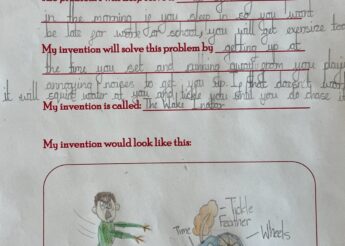 in the morning if you sleep in so you wont
be late for work or school, you will get exercise too
My invention will solve this problem by getting up at
the time you set and running away from you playing
annoying noises to get you up. If that doesn't work
it will squirt water at you and tickle you until you do chase it
My invention is called: The Wake Inator
My invention would look like this:
Tickle
Feather
Time
Wheels